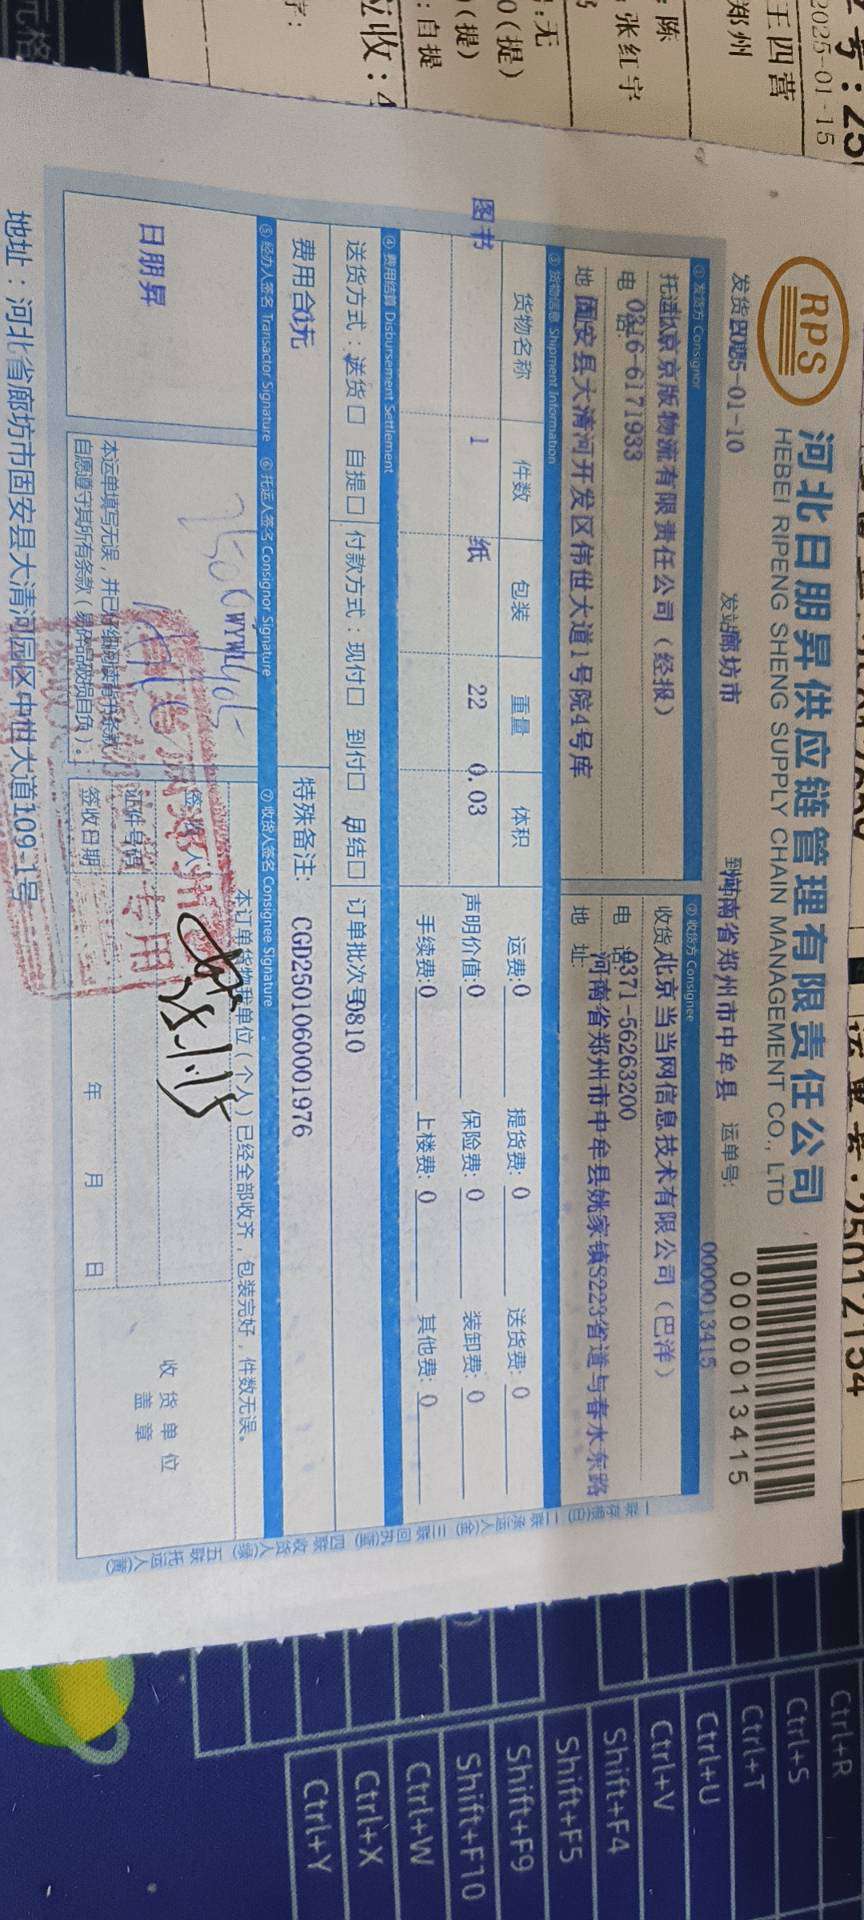 河北日朋昇供应链管理有限责任公司
HEBEI RIPENG SHENG SUPPLY CHAIN MANAGEMENT CO., LTD
RPS
0000013415
0000013415
发货日期2025-01-10
发站廊坊市
到站河南省郑州市中牟县
运单号:
① 发货方 Consignor
托运北京京版物流有限责任公司（经报）
电 话0316-6171933
地 固安县大清河开发区伟世大道1号院4号库
② 收货方 Consignee
收货北京当当网信息技术有限公司（巴洋）
电 话0371-56263200
地 址:河南省郑州市中牟县姚家镇S223省道与春水东路
③ 货物信息 Shipment Information
货物名称 件数 包装 重量 体积
图书 1 纸 22 0.03
运费:0 提货费:0 送货费:0
声明价值:0 保险费:0 装卸费:0
手续费:0 上楼费:0 其他费:0
④ 费用结算 Disbursement Settlement
送货方式：送货□ 自提□
付款方式：现付□ 到付□ 月结□
订单批次号0810
费用合0元
特殊备注: CGD2501060001976
⑤ 经办人签名 Transactor Signature
⑥ 托运人签名 Consignor Signature
⑦ 收货人签名 Consignee Signature
日朋昇
本订单货物我单位（个人）已经全部收齐，包装完好，件数无误。
签收人
证件号码
签收日期
年 月 日
收货单位
盖章
地址：河北省廊坊市固安县大清河园区中世大道109-1号
2025-01-15
王四营
郑州
陈
张红宇
:无
0(提)
(提)
:自提
应收:4
Ctrl+R
Ctrl+S
Ctrl+T
Ctrl+U
Ctrl+V
Shift+F4
Shift+F5
Shift+F9
Shift+F10
Ctrl+W
Ctrl+X
Ctrl+Y